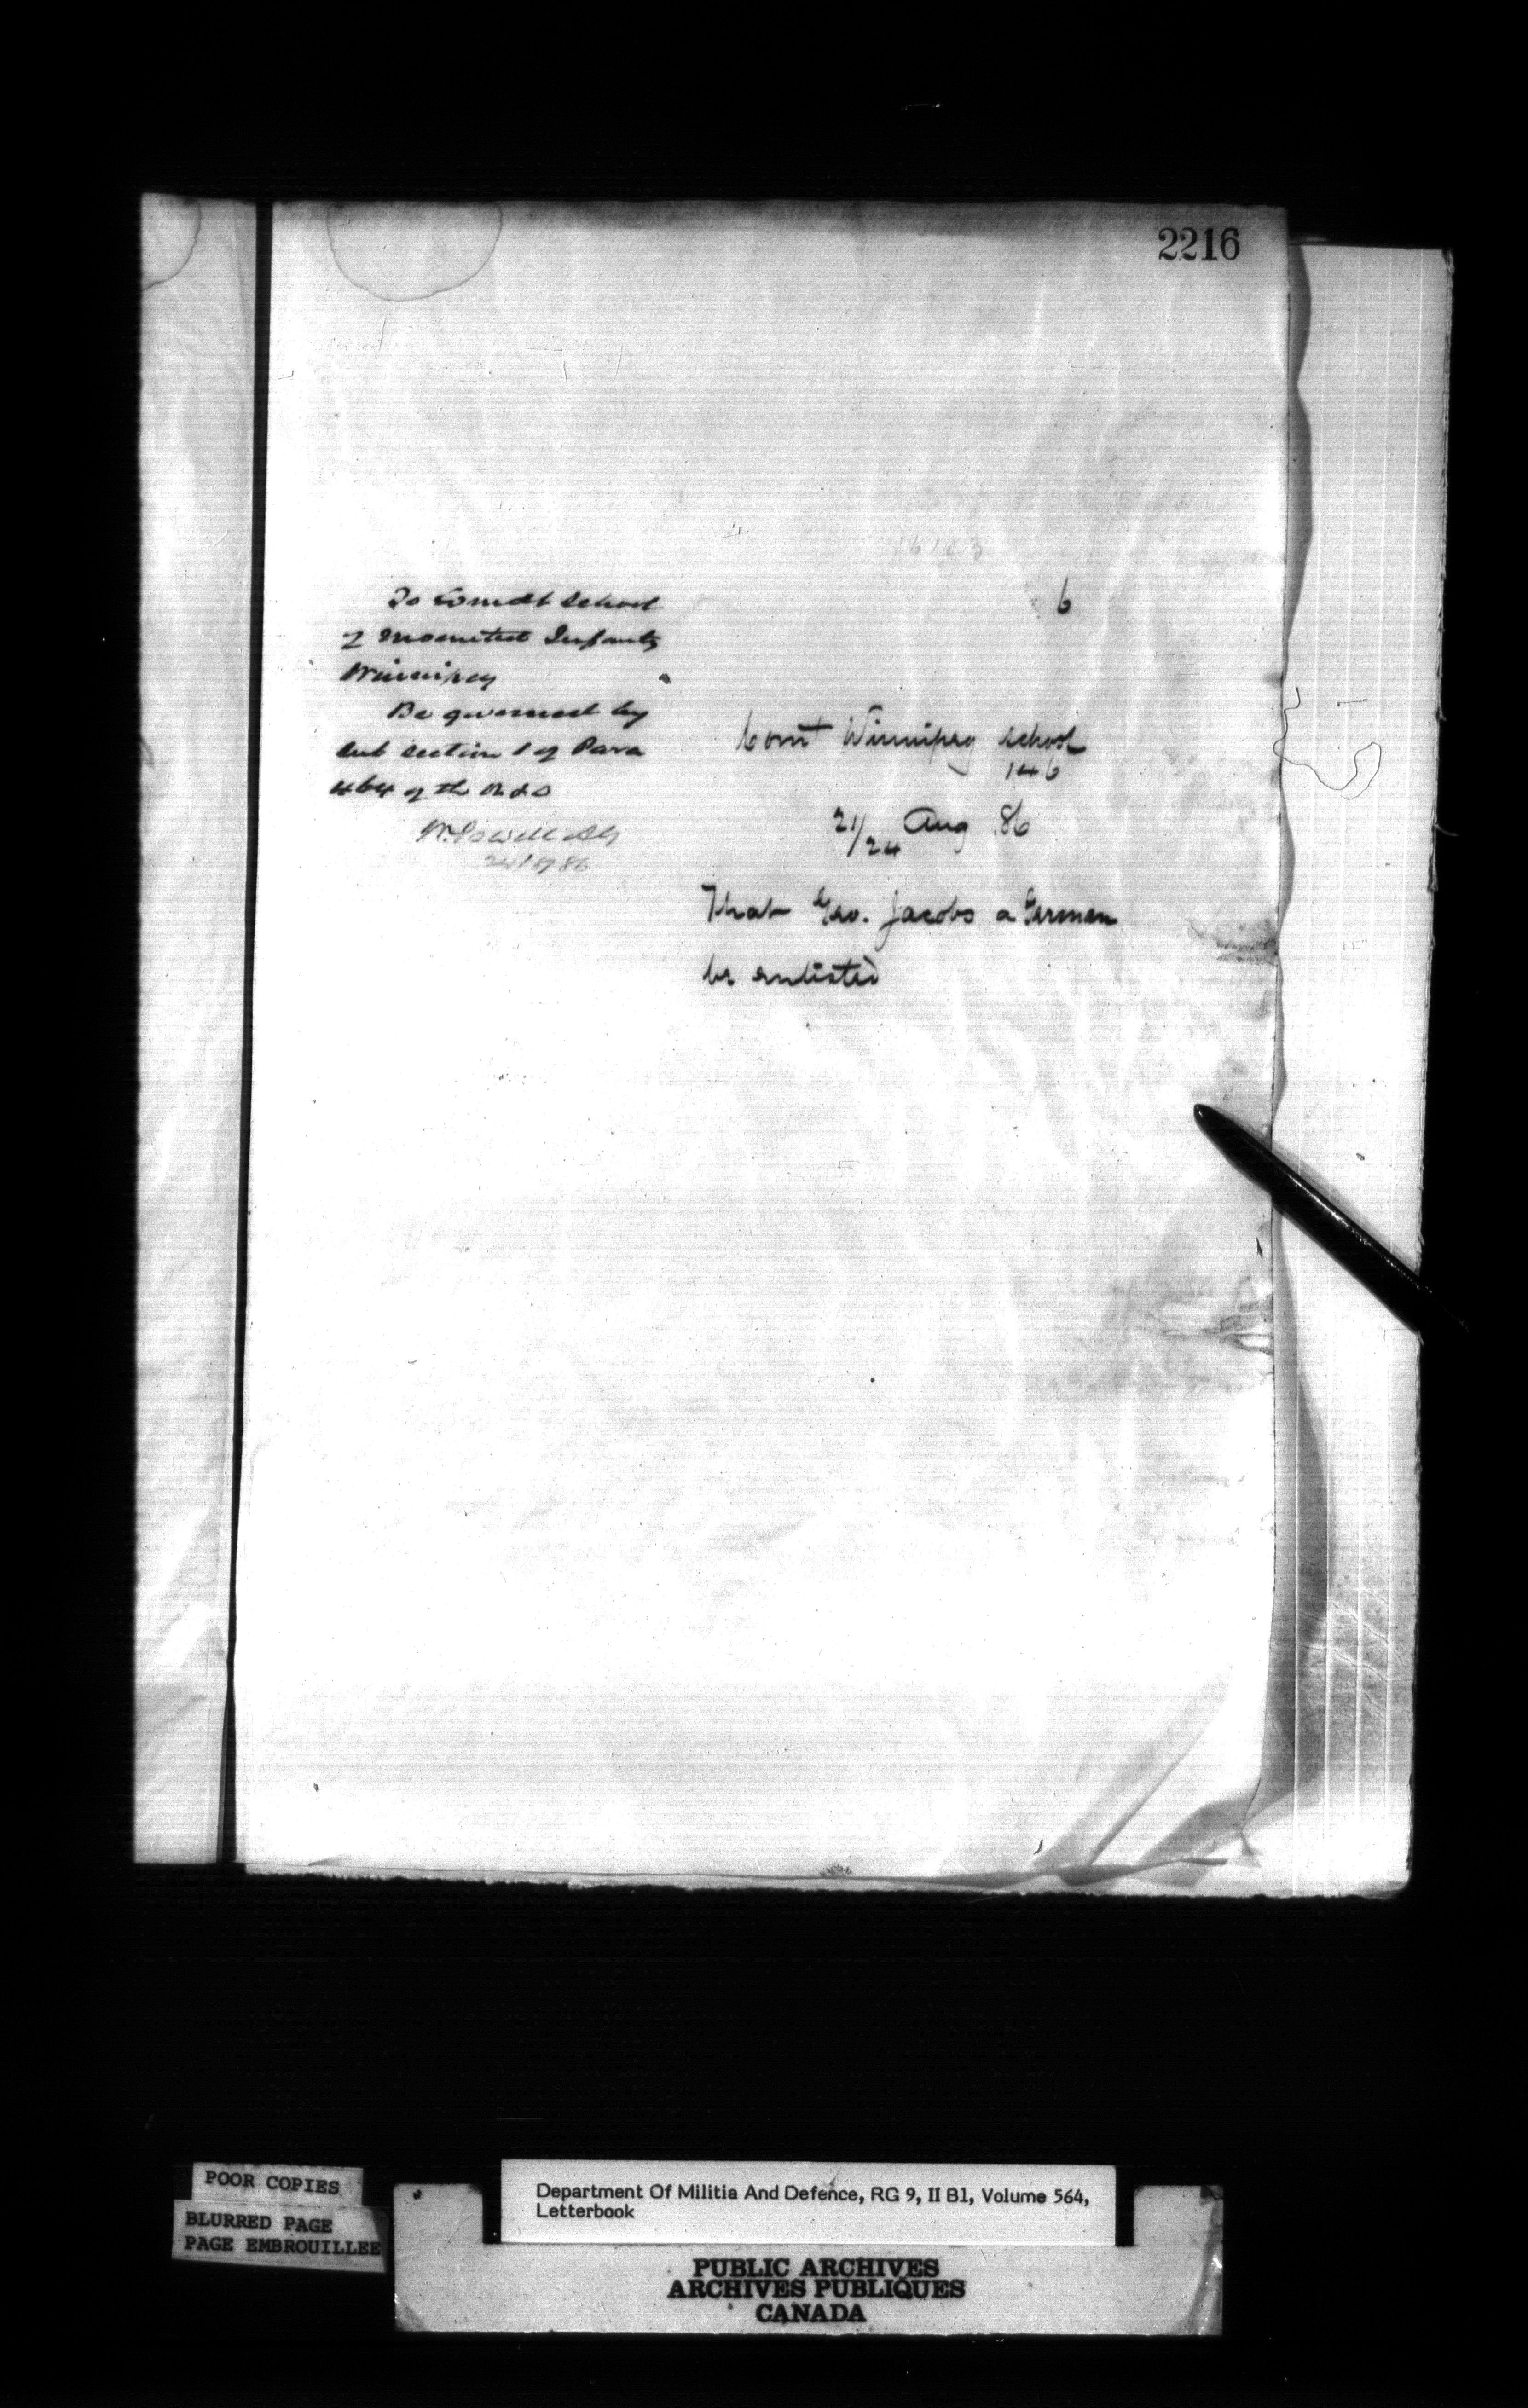 2216
16163
6
To Comdt School
of Mounted Infantry
Winnipeg
Be governed by
sub section 1 of Para
464 of the R & O
W. Powell AG
24/8/86
Comt Winnipeg School
146
21/24 Aug 86
That Geo. Jacobs a German
be enlisted
POOR COPIES
BLURRED PAGE
PAGE EMBROUILLEE
Department Of Militia And Defence, RG 9, II B1, Volume 564,
Letterbook
PUBLIC ARCHIVES
ARCHIVES PUBLIQUES
CANADA